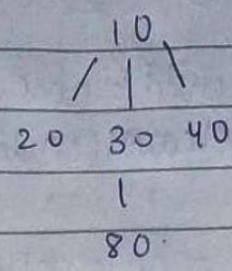 10
20 30 40
80